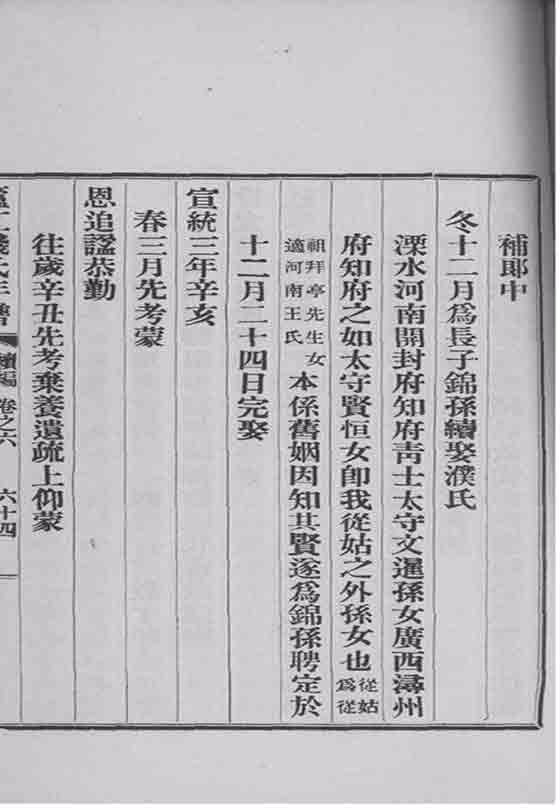 補郎中
冬十二月爲長子錦孫續娶濮氏
溧水河南開封府知府青士太守文暹孫女廣西潯州
府知府之如太守賢恒女卽我從姑之外孫女也從姑爲從
祖拜亭先生女適河南王氏本係舊姻因知其賢遂爲錦孫聘定於
十二月二十四日完娶
宣統三年辛亥
春三月先考蒙
恩追諡恭勤
往歲辛丑先考棄養遺疏上仰蒙
錢氏年譜 續編 卷之六 六十四